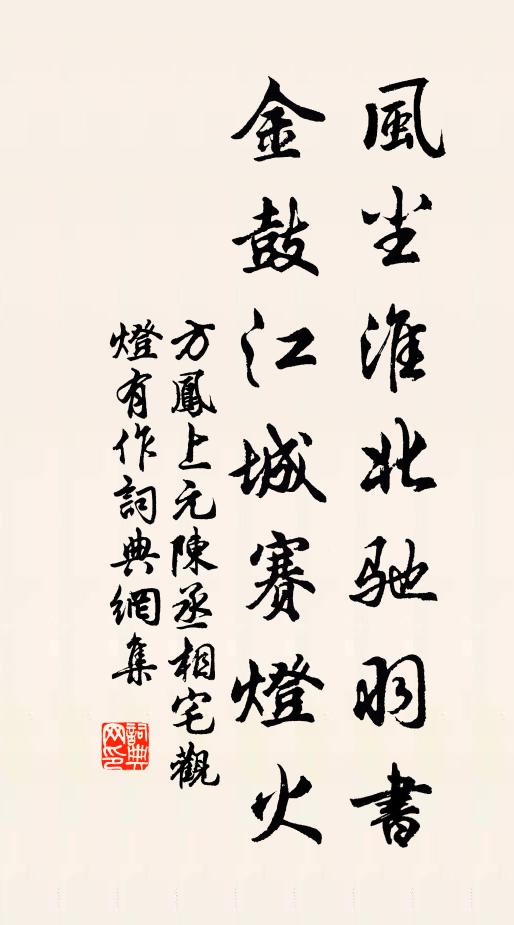 風尘淮北驰羽書
金鼓江城賽燈火
方鳳上元陳丞相宅觀
燈有作詞典網集
詞典网印